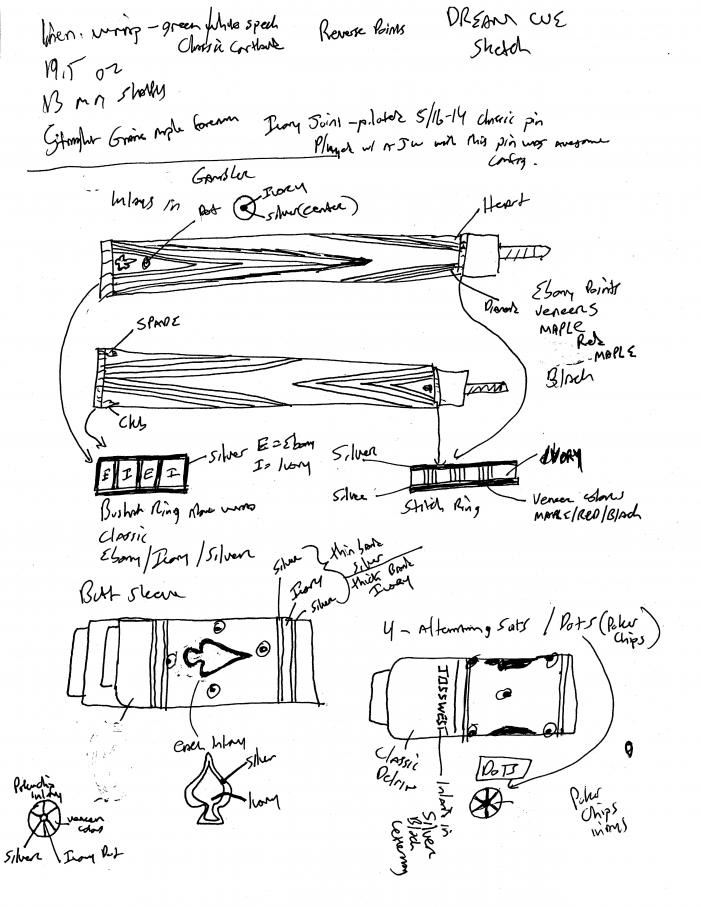 Linen wrap - green/white speck
Classic Cortland
Reverse Points
DREAM CUE
Sketch
19.5 oz
13 mm shafts
Straight Grain maple forearm
Ivory Joint - piloted 5/16-14 classic pin
Played w/ a JW with this pin was awesome
config.
Gambler
Inlays in
Dot
Ivory
silver (center)
Heart
Diamond
Ebony Points
veneers
MAPLE
Red
MAPLE
Black
SPADE
Club
Silver
E = Ebony
I = Ivory
E I E I
Bushka Ring above wrap
Classic
Ebony/Ivory/Silver
Silver
Silver
IVORY
Stitch Ring
veneer colors
MAPLE/RED/Black
Butt Sleeve
Silver
Ivory
Silver
thin bands
silver
thick Bands
Ivory
4 - Alternating Suits / Dots (Poker
Chips)
each Inlay
Silver
Ivory
JOSSWEST
Classic
Delrin
Inlaid in
Silver
Black
DOTS
Poker
Chips
inlays
Pokerchip
inlay
veneer
colors
Silver
Ivory Dot